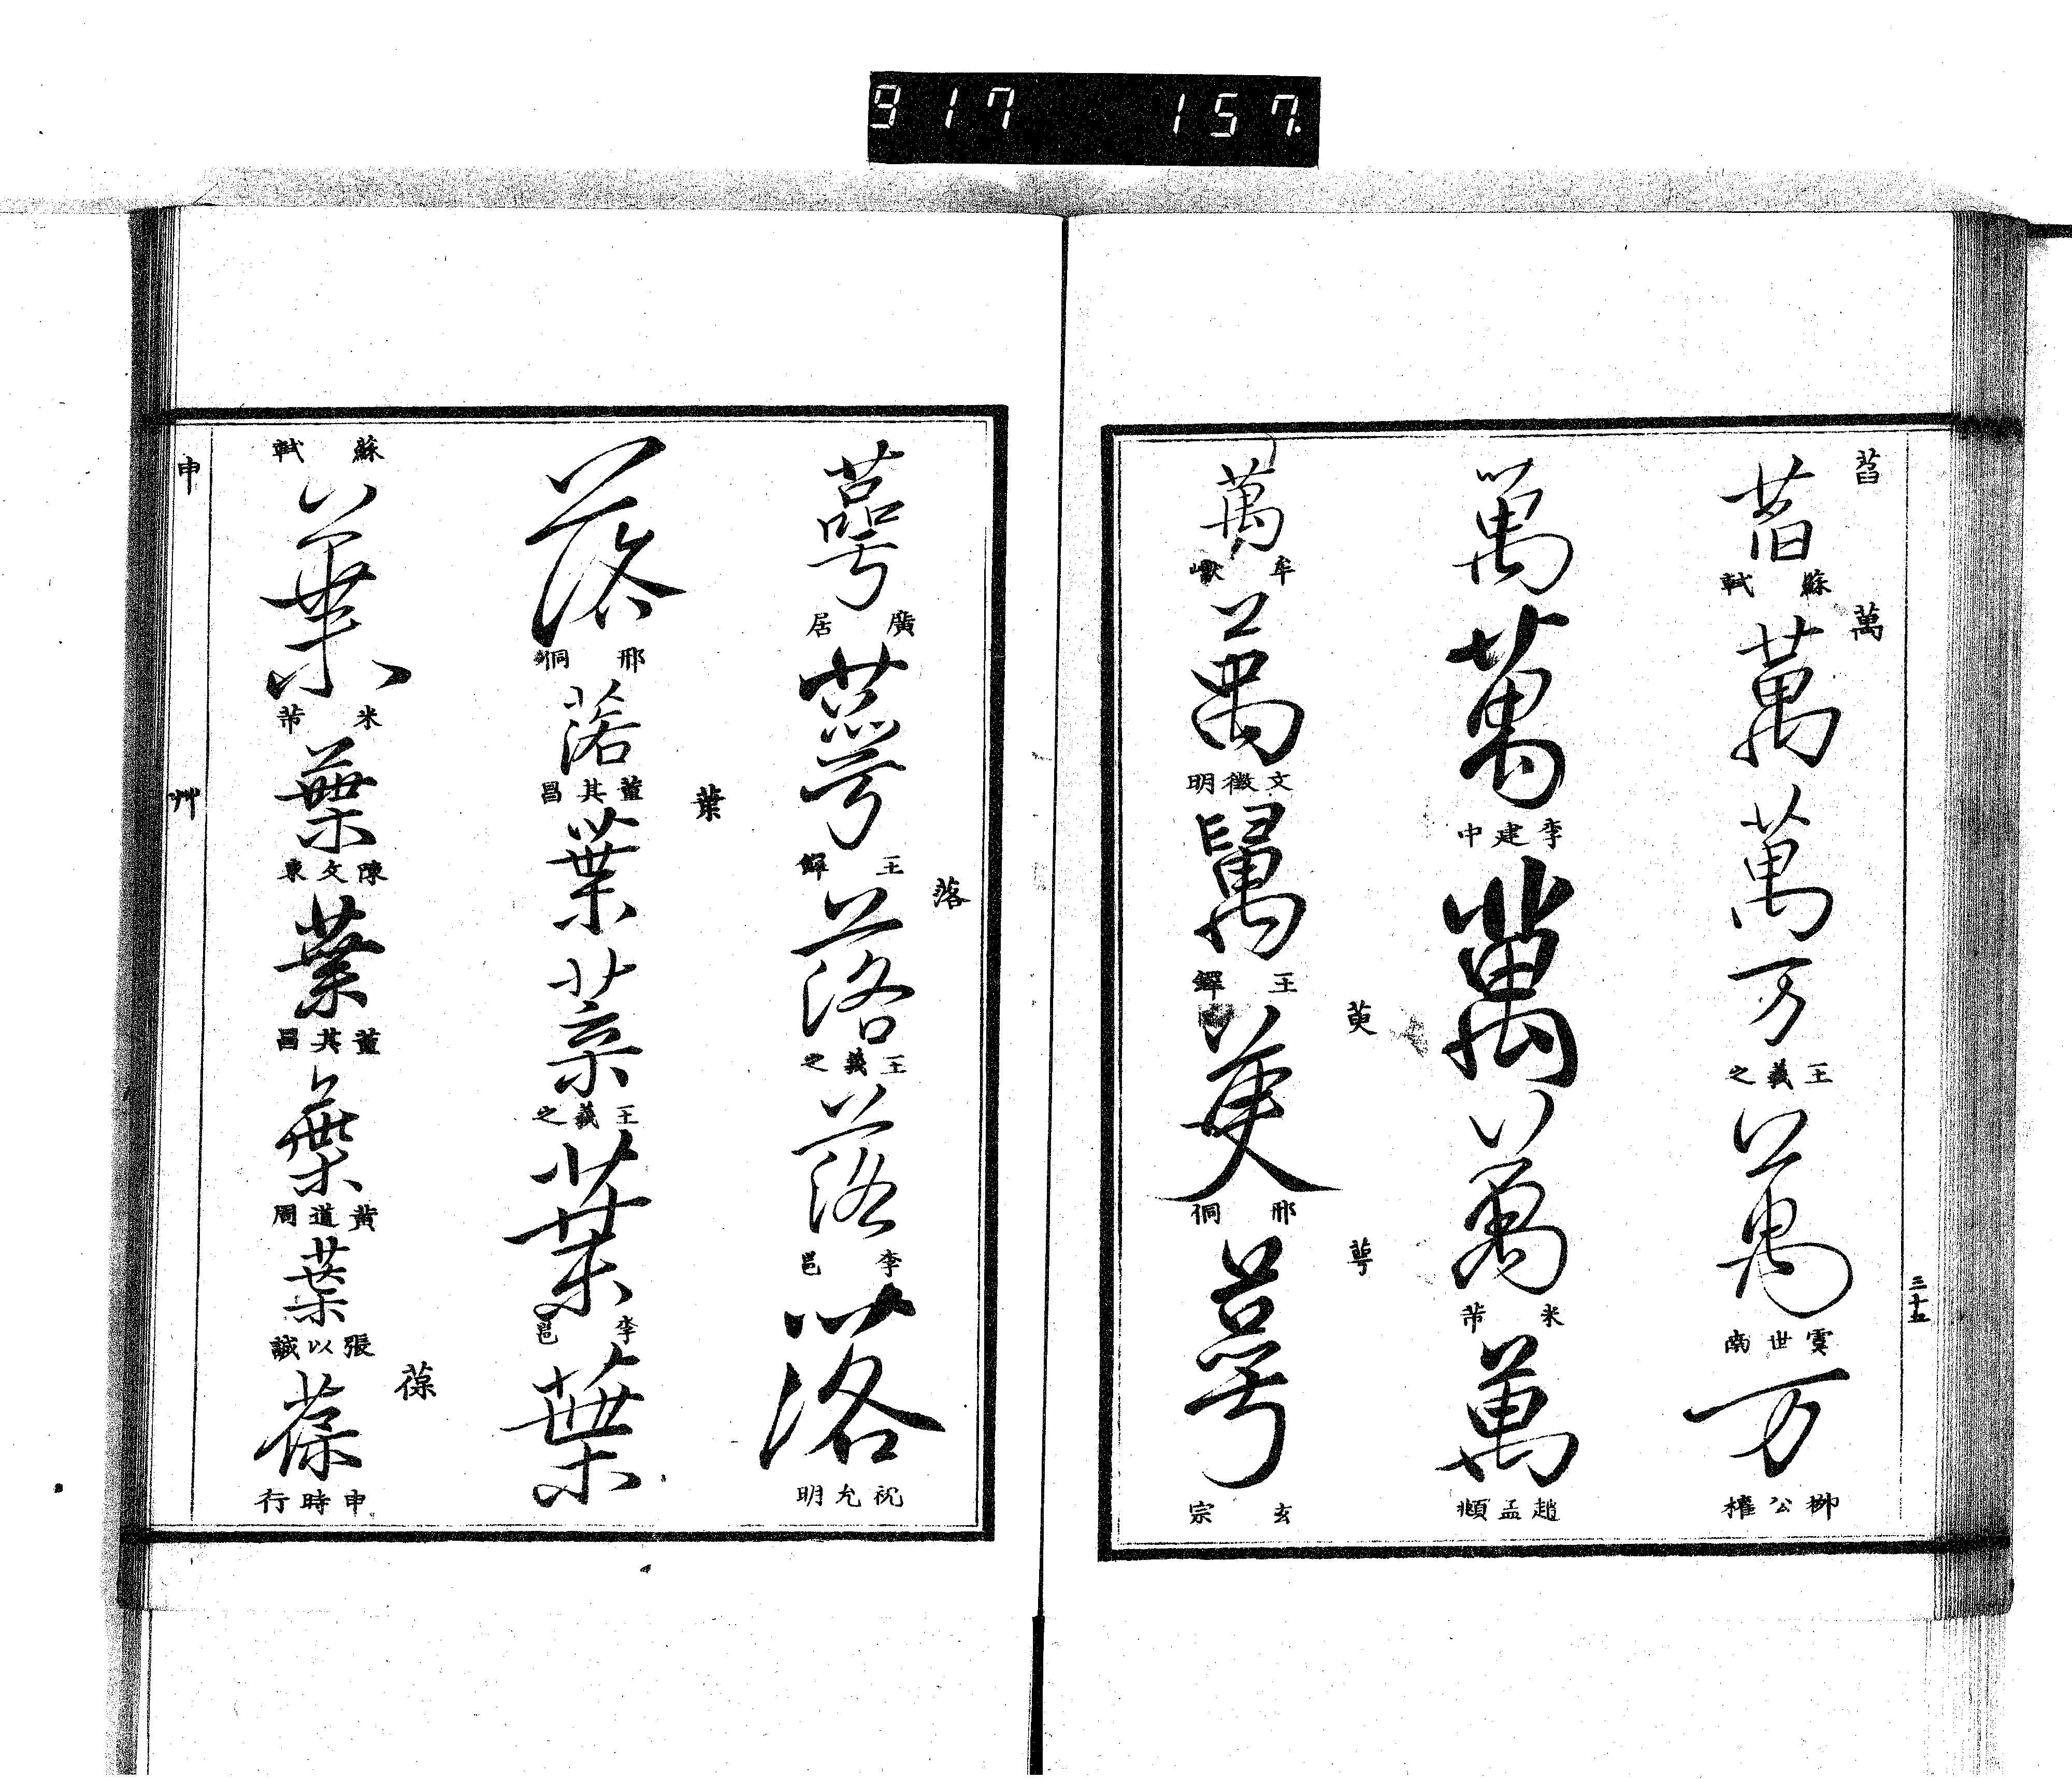 917 157
萏
蓞
蘇軾
萬
萬
萬
万
王羲之
萬
虞世南
万
柳公權
三十五
萬
萬
李建中
萬
萬
米芾
萬
趙孟頫
萬
牟巘
萬
文徵明
萬
王鐸
萸
萸
邢侗
萼
蕚
玄宗
居廣
王鐸
落
落
王羲之
落
李邕
落
祝允明
落
邢侗
落
董其昌
葉
葉
葉
王羲之
葉
李邕
葉
蘇軾
葉
米芾
葉
陳文東
葉
董其昌
葉
黃道周
葉
張以誠
葆
葆
申時行
申
艸